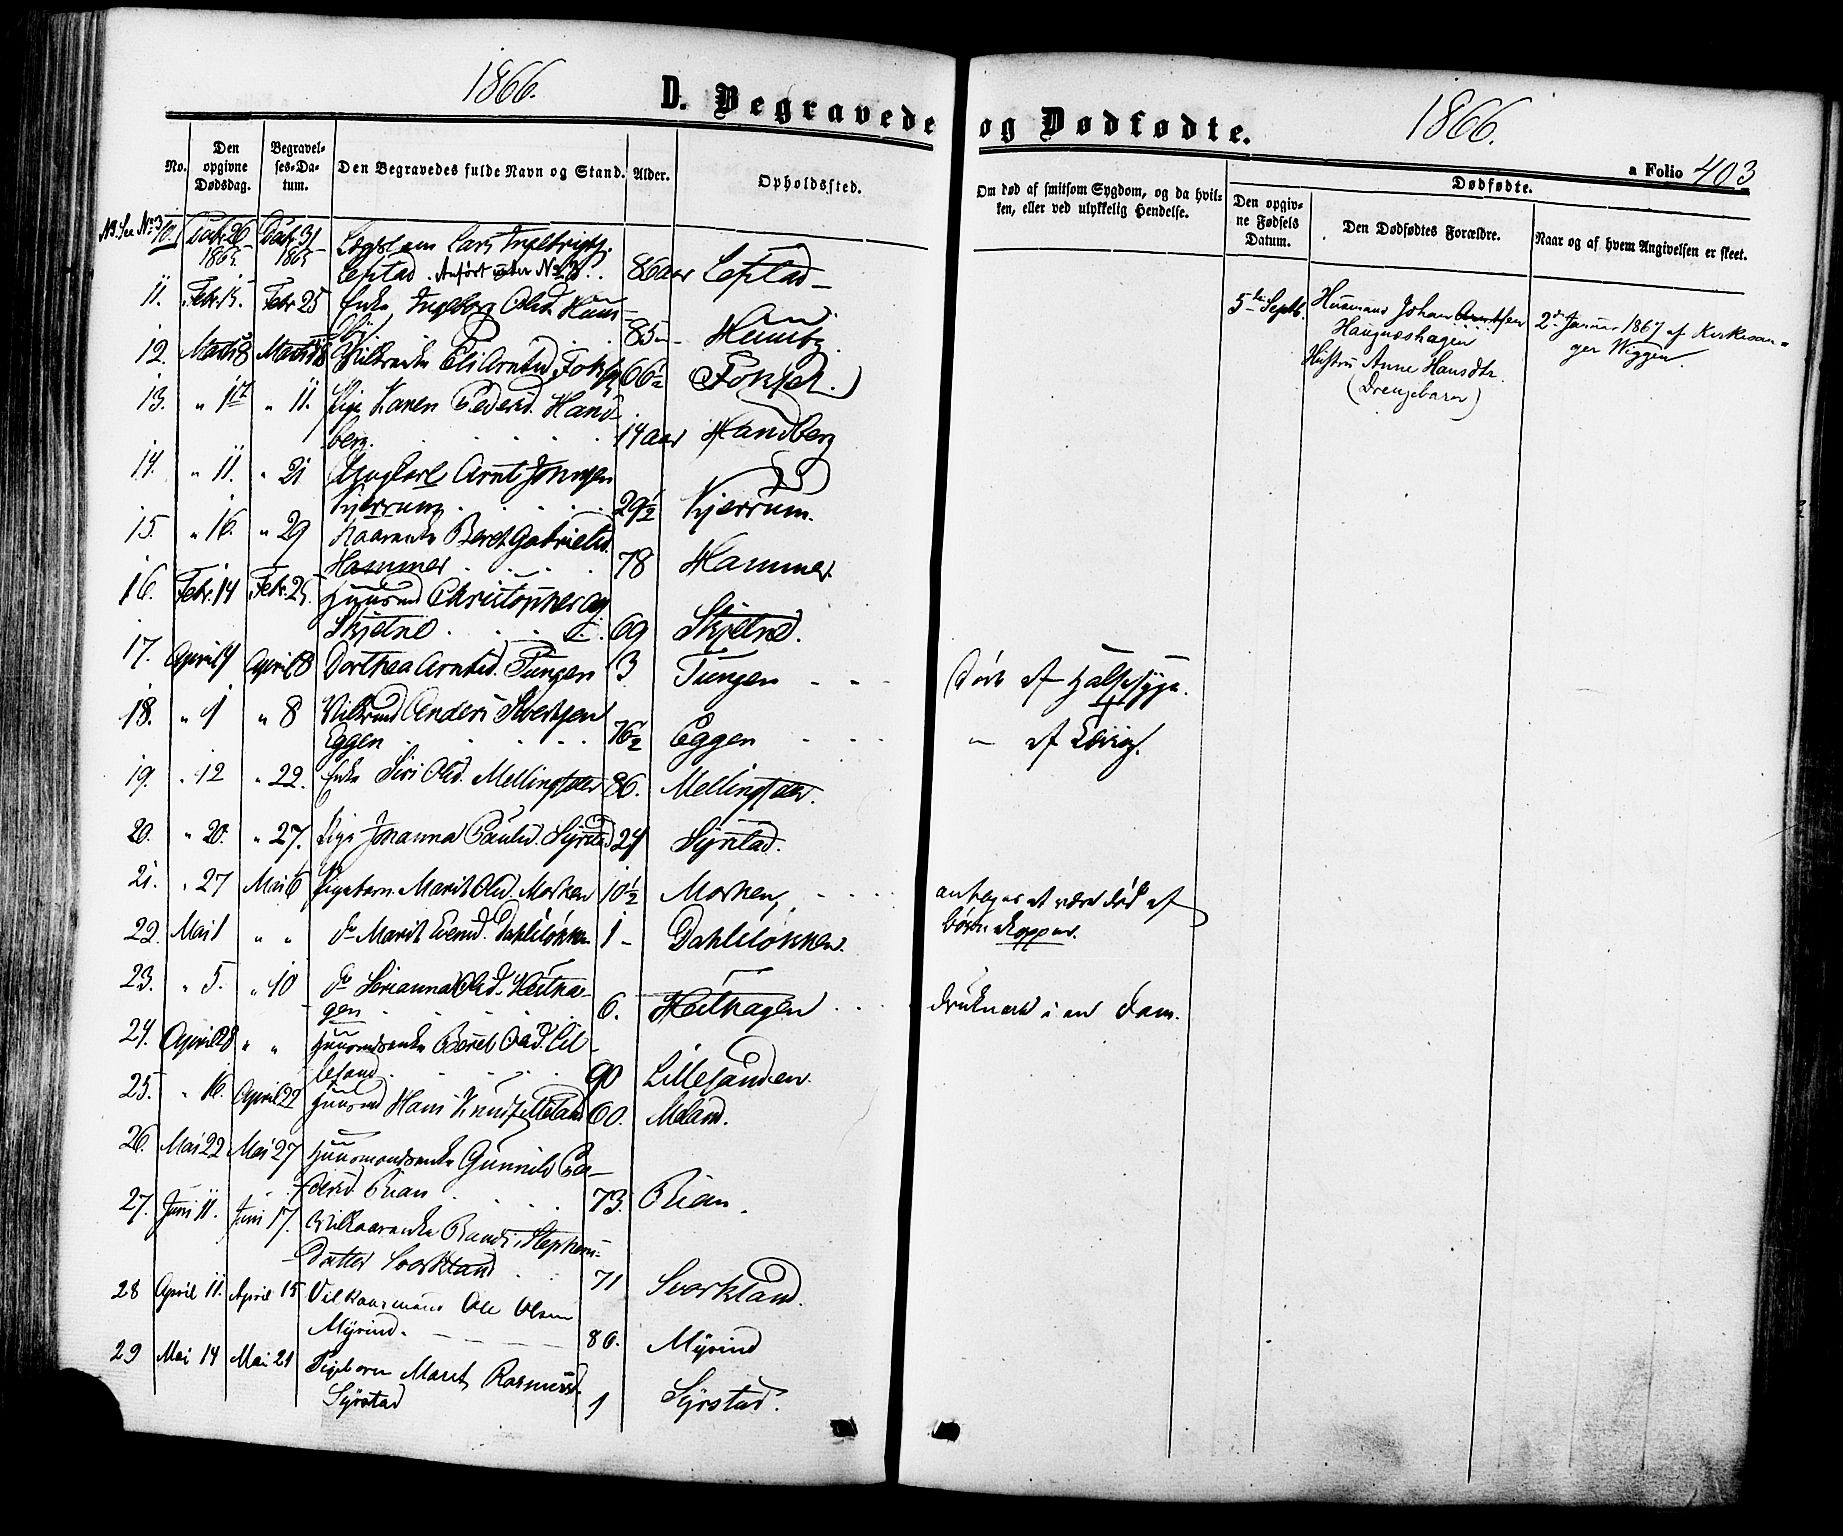 1866.
D. Begravede og Dødfødte.
1866.
a Folio 403
No.
Den opgivne Dødsdag.
Begravelses-Datum.
Den Begravedes fulde Navn og Stand.
Alder.
Opholdssted.
Om død af smitsom Sygdom, og da hvilken, eller ved ulykkelig Hendelse.
Dødfødte.
Den opgivne Fødsels Datum.
Den Dødfødtes Forældre.
Naar og af hvem Angivelsen er skeet.
NB. see No 3 10. 1865. 1865 Lars
anført under No 3. 86 aar
11. Febr. 15. Febr 25 Enke Ingeborg Olsd.
85
12. Marts 8 Marts 18 Eli Arntsd. 66½
13. " 1 " 11. Pige Karen Pedersd. Hand-
berg. 14 aar Handberg
14. " 11. " 21 Ungkarl Arnt Jonsen
Kjerrum 29½ Kjerrum.
15. " 16. " 29 Kaarenke Beret Gabrielsd.
Hammer 78 Hammer.
16. Febr. 14 Febr. 25. Huusmd Christopher
Skjetne 69 Skjetne.
17. April 4 April 8 Dorthea Arntsd. Tungen 3 Tungen - - Død af Halssyge.
18. " 1 " 8 Vilkrmd Anders Sivertsen
Eggen 76½ Eggen - - " af
19. " 12 " 22. Enke Siri Olsd. Mellingsæter 86. Mellingsæter.
20. " 20. " 27. Pige Johanna Paulsd. Syrstad 24 Syrstad.
21. " 27 Mai 6 Pigebarn Marit Olsd. Morken 10½ Morken, - - antages at være død af
børnekopper.
22. Mai 1 " " do Marit Evensd. Dahlsløkken 1 - Dahlsløkken.
23. " 5. " 10 do Serianna Olsd. Hestha-
gen 6. Hesthagen - - druknede i en Dam.
24. April 28 " " Huusmdsenke Beret Olsd. Lil-
lesand 90 Lillesanden.
25. " 16. April 22 Huusmd Hans Knuds. Meland 60. Meland.
26. Mai 22 Mai 27 Huusmandsenke Gunnild Pe-
dersd. Rian 73. Rian.
27. Juni 11. Juni 17. Vilkaarenke Randi Stephens-
Datter Svorkland 71 Svorkland.
28 April 11. April 15 Vilkaarsmand Ole Olsen
Myrind. 80. Myrind
29 Mai 14 Mai 21 Pigebarn Maret Rasmusd.
Syrstad 1 Syrstad.
5te Septb. Huusmand Johan Arntsen
Haugnæshagen
Hustru Anne Hansdtr.
(Drengebarn)
2den Januar 1867 af Kirkesan-
ger Wiggen.